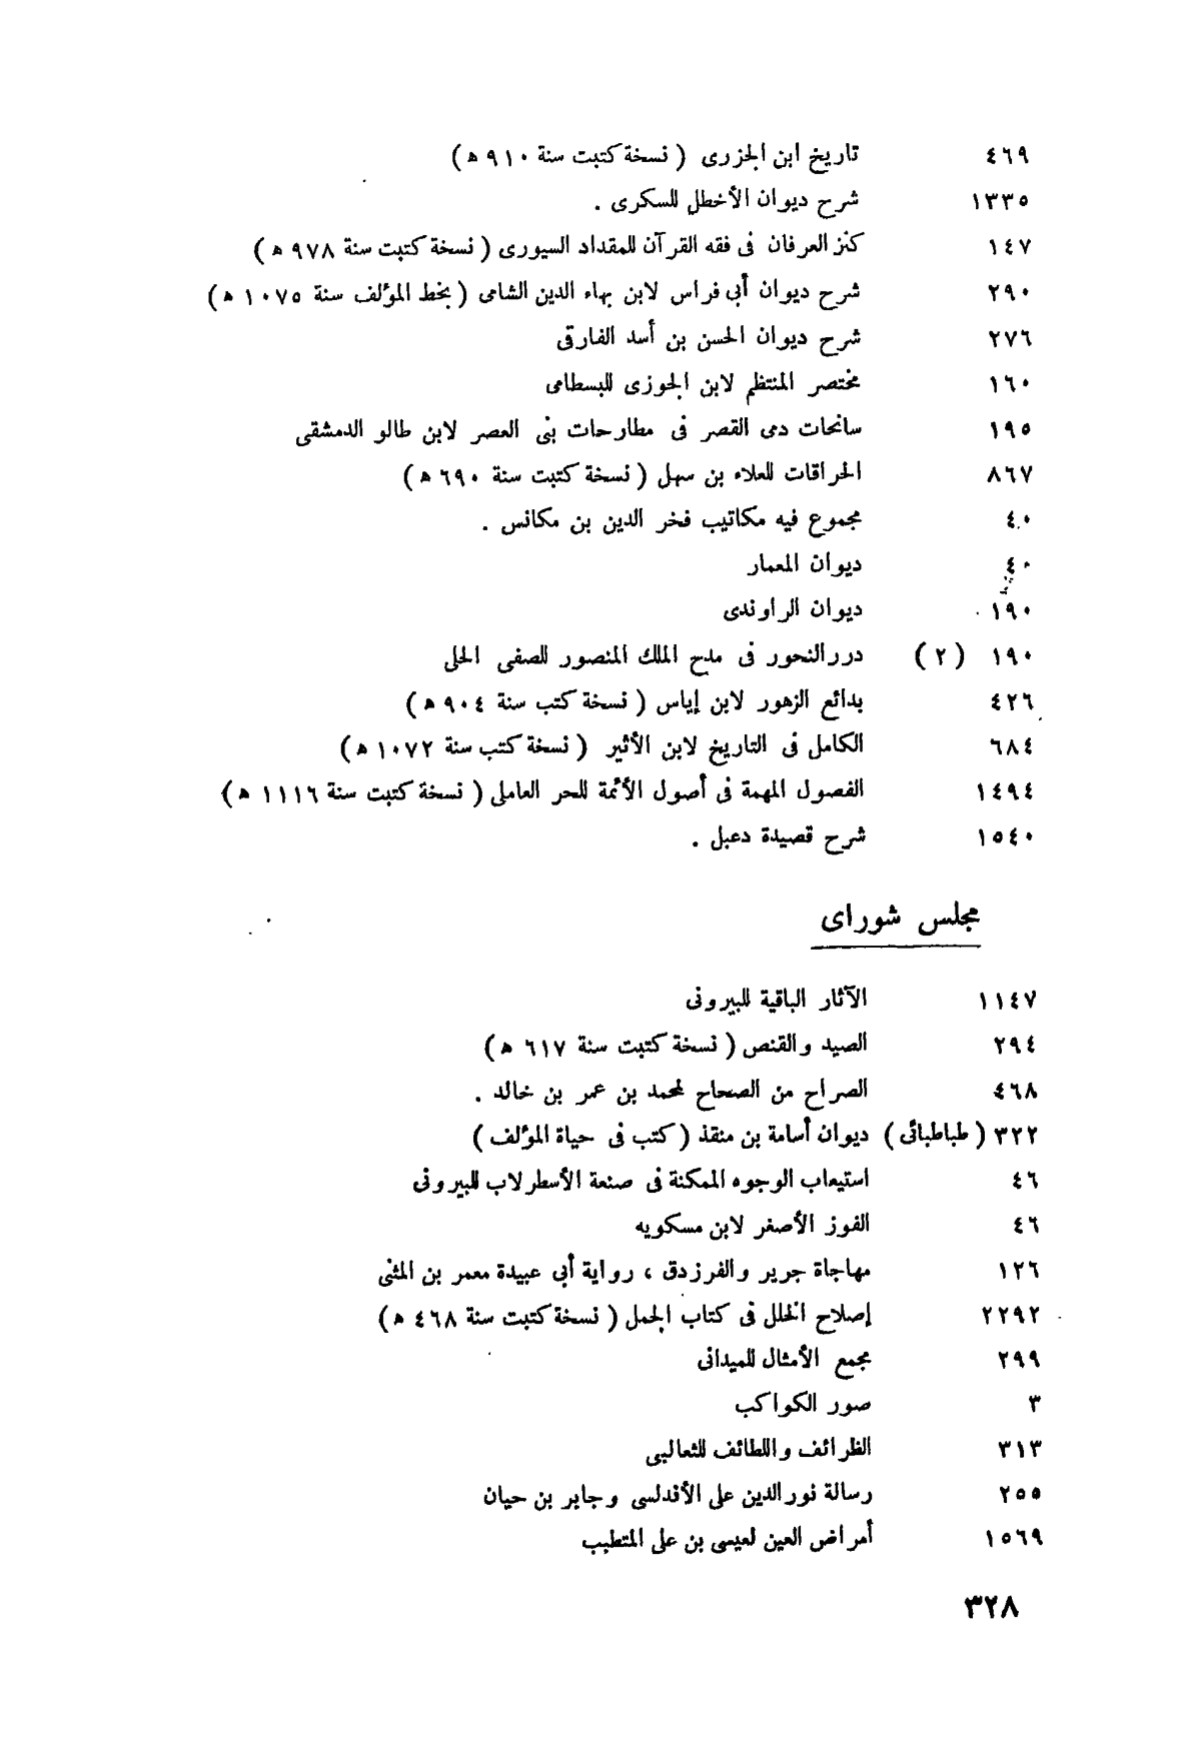 ٤٦٩ تاريخ ابن الجزرى ( نسخة كتبت سنة ٩١٠ ه )
١٣٣٥ شرح ديوان الأخطل للسكرى .
١٤٧ كنز العرفان فى فقه القرآن للمقداد السيورى ( نسخة كتبت سنة ٩٧٨ ه )
٢٩٠ شرح ديوان أبى فراس لابن بهاء الدين الشامى ( بخط المؤلف سنة ١٠٧٥ ه )
٢٧٦ شرح ديوان الحسن بن أسد الفارقى
١٦٠ مختصر المنتظم لابن الجوزى للبسطامى
١٩٥ سانحات دمى القصر فى مطارحات بنى العصر لابن طالو الدمشقى
٨٦٧ الحراقات للعلاء بن سهل ( نسخة كتبت سنة ٦٩٠ ه )
٤٠ مجموع فيه مكاتيب فخر الدين بن مكانس .
٤٠ ديوان المعمار
١٩٠ ديوان الراوندى
١٩٠ ( ٢ ) درر النحور فى مدح الملك المنصور للصفى الحلى
٤٢٦ بدائع الزهور لابن إياس ( نسخة كتب سنة ٩٠٤ ه )
٦٨٤ الكامل فى التاريخ لابن الأثير ( نسخة كتب سنة ١٠٧٢ ه )
١٤٩٤ الفصول المهمة فى أصول الأئمة للحر العاملى ( نسخة كتبت سنة ١١١٦ ه )
١٥٤٠ شرح قصيدة دعبل .
مجلس شوراى
١١٤٧ الآثار الباقية للبيرونى
٢٩٤ الصيد والقنص ( نسخة كتبت سنة ٦١٧ ه )
٤٦٨ الصراح من الصحاح لمحمد بن عمر بن خالد .
٣٢٢ ( طباطبائى ) ديوان أسامة بن منقذ ( كتب فى حياة المؤلف )
٤٦ استيعاب الوجوه الممكنة فى صنعة الأسطرلاب للبيرونى
٤٦ الفوز الأصغر لابن مسكويه
١٢٦ مهاجاة جرير والفرزدق ، رواية أبى عبيدة معمر بن المثنى
٢٢٩٢ إصلاح الخلل فى كتاب الجمل ( نسخة كتبت سنة ٤٦٨ ه )
٢٩٩ مجمع الأمثال للميدانى
٣ صور الكواكب
٣١٣ الظرائف واللطائف للثعالبى
٢٥٥ رسالة نور الدين على الأندلسى وجابر بن حيان
١٥٦٩ أمراض العين لعيسى بن على المتطبب
٣٢٨